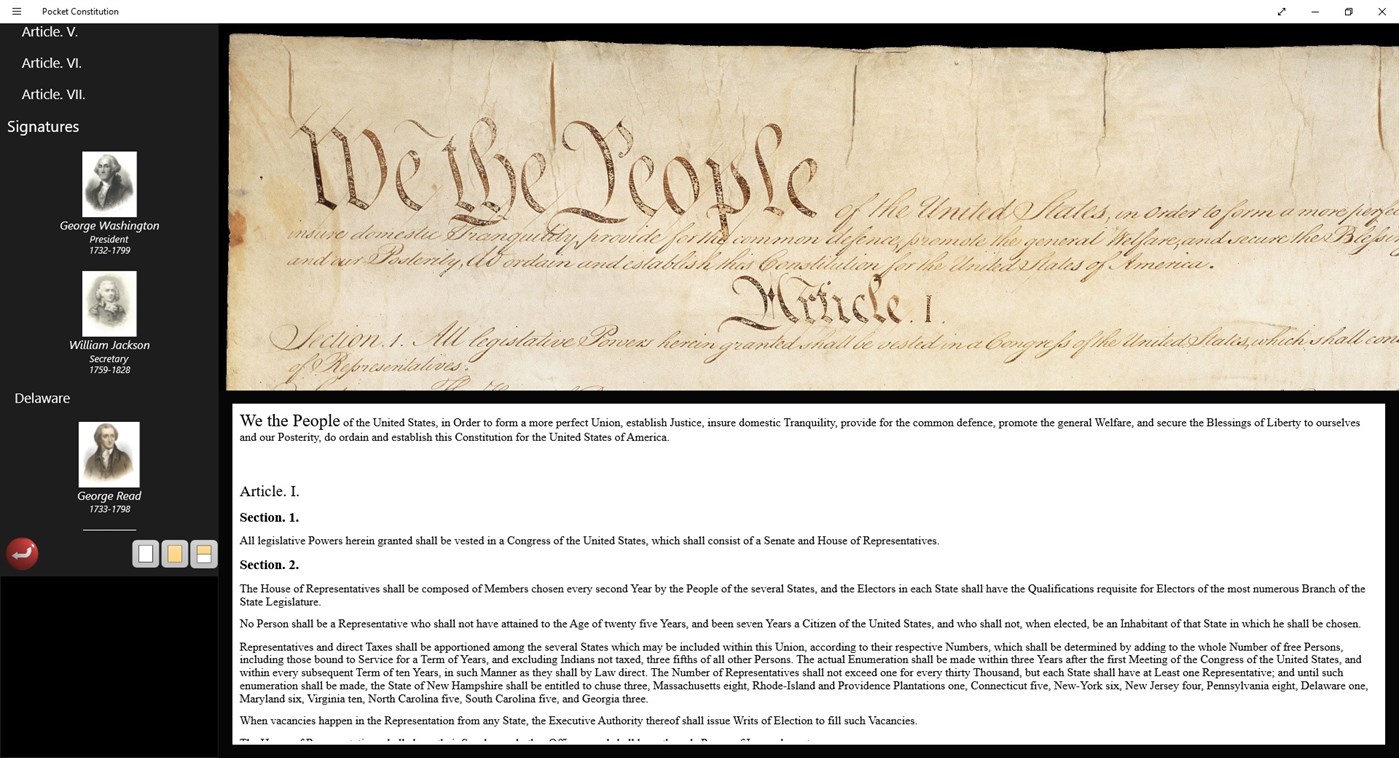 Pocket Constitution
Article. V.
Article. VI.
Article. VII.
Signatures
George Washington
President
1732-1799
William Jackson
Secretary
1759-1828
Delaware
George Read
1733-1798
We the People of the United States, in Order to form a more perf
insure domestic Tranquility, provide for the common defence, promote the general Welfare, and secure the Bless
and our Posterity, do ordain and establish this Constitution for the United States of America.
Article. I.
Section. 1. All legislative Powers herein granted shall be vested in a Congress of the United States, which shall con
of Representatives.
We the People of the United States, in Order to form a more perfect Union, establish Justice, insure domestic Tranquility, provide for the common defence, promote the general Welfare, and secure the Blessings of Liberty to ourselves
and our Posterity, do ordain and establish this Constitution for the United States of America.
Article. I.
Section. 1.
All legislative Powers herein granted shall be vested in a Congress of the United States, which shall consist of a Senate and House of Representatives.
Section. 2.
The House of Representatives shall be composed of Members chosen every second Year by the People of the several States, and the Electors in each State shall have the Qualifications requisite for Electors of the most numerous Branch of the
State Legislature.
No Person shall be a Representative who shall not have attained to the Age of twenty five Years, and been seven Years a Citizen of the United States, and who shall not, when elected, be an Inhabitant of that State in which he shall be chosen.
Representatives and direct Taxes shall be apportioned among the several States which may be included within this Union, according to their respective Numbers, which shall be determined by adding to the whole Number of free Persons,
including those bound to Service for a Term of Years, and excluding Indians not taxed, three fifths of all other Persons. The actual Enumeration shall be made within three Years after the first Meeting of the Congress of the United States, and
within every subsequent Term of ten Years, in such Manner as they shall by Law direct. The Number of Representatives shall not exceed one for every thirty Thousand, but each State shall have at Least one Representative; and until such
enumeration shall be made, the State of New Hampshire shall be entitled to chuse three, Massachusetts eight, Rhode-Island and Providence Plantations one, Connecticut five, New-York six, New Jersey four, Pennsylvania eight, Delaware one,
Maryland six, Virginia ten, North Carolina five, South Carolina five, and Georgia three.
When vacancies happen in the Representation from any State, the Executive Authority thereof shall issue Writs of Election to fill such Vacancies.